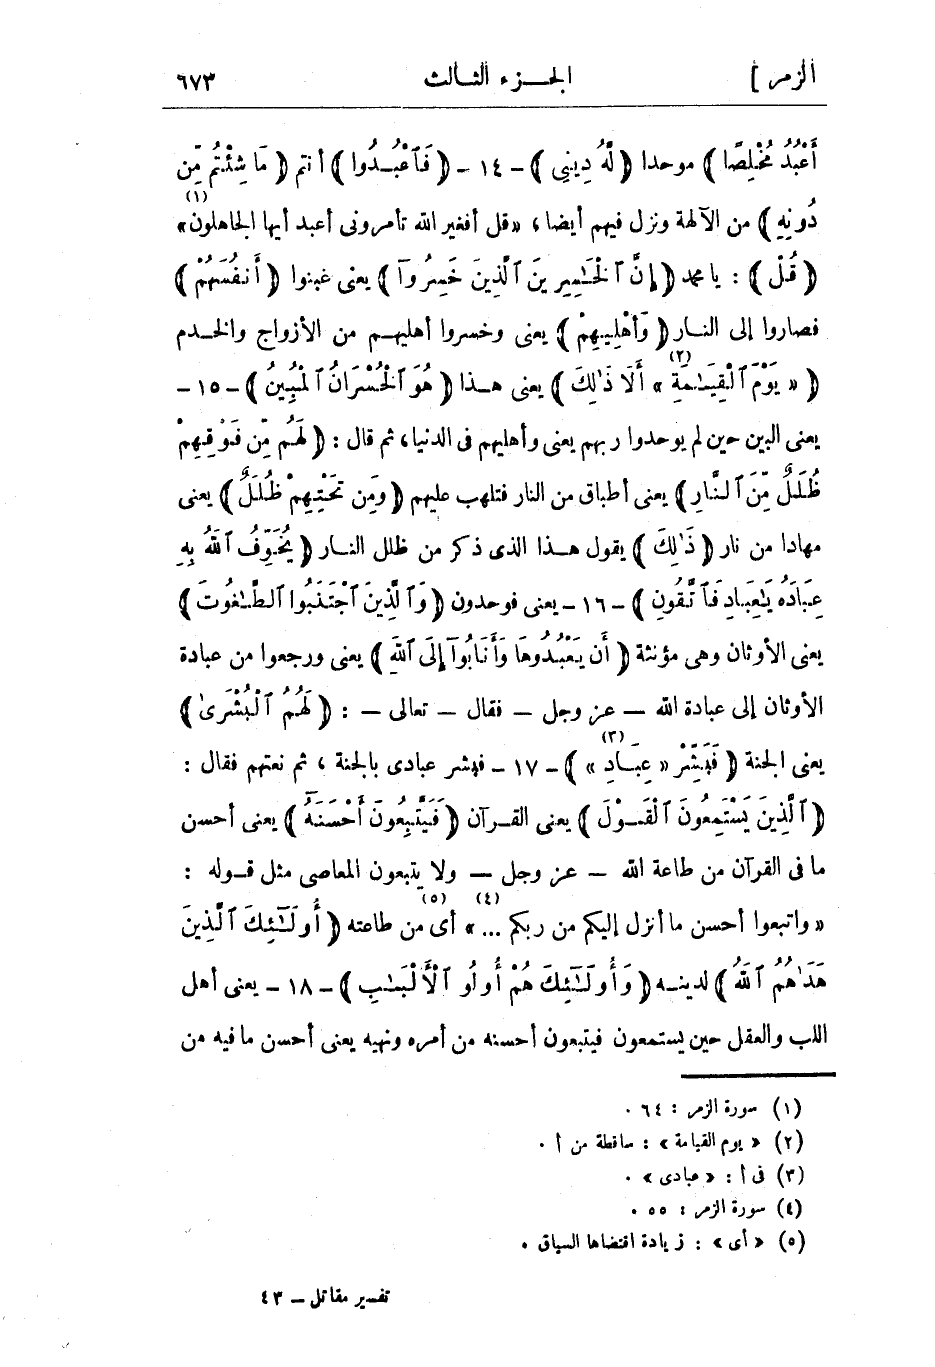 الزمر ] الجزء الثالث ٦٧٣
أَعْبُدُ مُخْلِصًا ﴾ موحدا ﴿ لَّهُ دِينِي ﴾ – ١٤ – ﴿ فَٱعْبُدُوا ﴾ أنتم ﴿ مَا شِئْتُم مِّن
دُونِهِ ﴾ من الآلهة ونزل فيهم أيضا، «قل أفغير الله تأمرونى أعبد أيها الجاهلون» (١)
﴿ قُلْ ﴾ : يا محمد ﴿ إِنَّ ٱلْخَٰسِرِينَ ٱلَّذِينَ خَسِرُوٓا ﴾ يعنى غبنوا ﴿ أَنفُسَهُمْ ﴾
فصاروا إلى النار ﴿ وَأَهْلِيهِمْ ﴾ يعنى وخسروا أهليهم من الأزواج والخدم
﴿ « يَوْمَ ٱلْقِيَٰمَةِ » (٢) أَلَا ذَٰلِكَ ﴾ يعنى هذا ﴿ هُوَ ٱلْخُسْرَانُ ٱلْمُبِينُ ﴾ – ١٥ –
يعنى البين حين لم يوحدوا ربهم يعنى وأهليهم فى الدنيا، ثم قال : ﴿ لَهُم مِّن فَوْقِهِمْ
ظُلَلٌ مِّنَ ٱلنَّارِ ﴾ يعنى أطباق من النار فتلهب عليهم ﴿ وَمِن تَحْتِهِمْ ظُلَلٌ ﴾ يعنى
مهادا من نار ﴿ ذَٰلِكَ ﴾ يقول هذا الذى ذكر من ظلل النار ﴿ يُخَوِّفُ ٱللَّهُ بِهِ
عِبَادَهُ يَٰعِبَادِ فَٱتَّقُونِ ﴾ – ١٦ – يعنى فوحدون ﴿ وَٱلَّذِينَ ٱجْتَنَبُوا ٱلطَّٰغُوتَ ﴾
يعنى الأوثان وهى مؤنثة ﴿ أَن يَعْبُدُوهَا وَأَنَابُوٓا إِلَى ٱللَّهِ ﴾ يعنى ورجعوا من عبادة
الأوثان إلى عبادة الله – عز وجل – فقال – تعالى – : ﴿ لَهُمُ ٱلْبُشْرَىٰ ﴾
يعنى الجنة ﴿ فَبَشِّرْ « عِبَادِ » (٣) ﴾ – ١٧ – فبشر عبادى بالجنة ، ثم نعتهم فقال :
﴿ ٱلَّذِينَ يَسْتَمِعُونَ ٱلْقَوْلَ ﴾ يعنى القرآن ﴿ فَيَتَّبِعُونَ أَحْسَنَهُٓ ﴾ يعنى أحسن
ما فى القرآن من طاعة الله – عز وجل – ولا يتبعون المعاصى مثل قوله :
« واتبعوا أحسن ما أنزل إليكم من ربكم ... » (٤) أى (٥) من طاعته ﴿ أُولَٰٓئِكَ ٱلَّذِينَ
هَدَىٰهُمُ ٱللَّهُ ﴾ لدينه ﴿ وَأُولَٰٓئِكَ هُمْ أُولُو ٱلْأَلْبَٰبِ ﴾ – ١٨ – يعنى أهل
اللب والعقل حين يستمعون فيتبعون أحسنه من أمره ونهيه يعنى أحسن ما فيه من
(١) سورة الزمر : ٦٤ .
(٢) « يوم القيامة » : ساقطة من أ .
(٣) فى أ : « عبادى » .
(٤) سورة الزمر : ٥٥ .
(٥) « أى » : زيادة اقتضاها السياق .
تفسير مقاتل – ٤٣